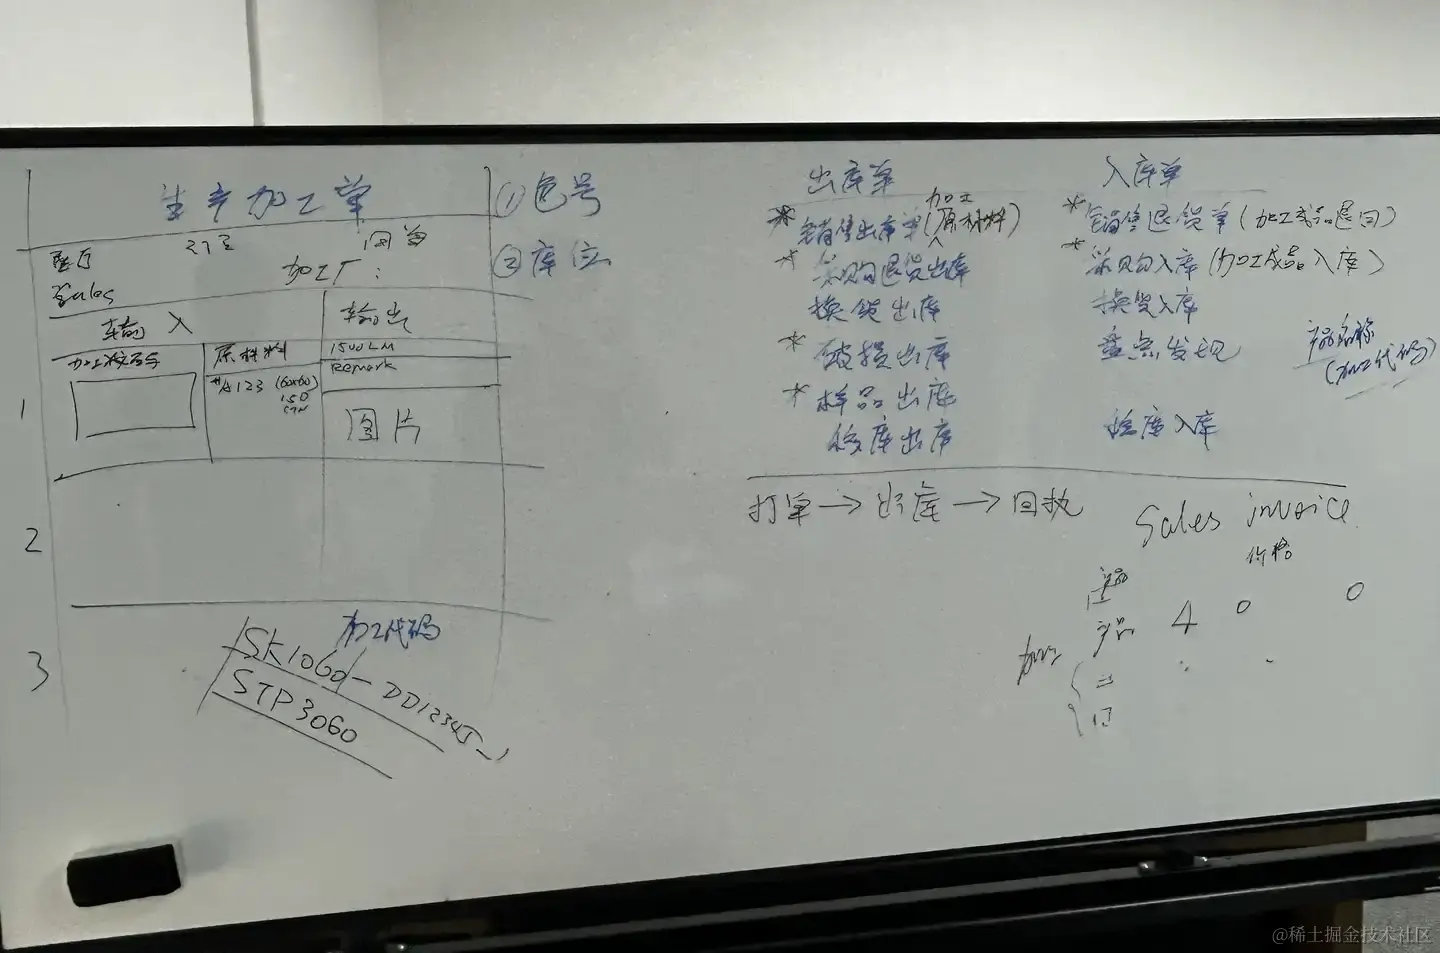 生产加工单
①色号
②库位
加工厂:
Sales
输入
输出
原材料
1500LM
Remark
#A123 (60x60)
150
CTN
图片
1
2
3
加工代码
SK1060-DD12345-1
STP3060
出库单
入库单
加工
*销售出库单(原材料)
*销售退货单(加工成品退回)
*采购退货出库
*采购入库(加工成品入库)
换货出库
换货入库
*破损出库
盘点发现
产品名称
(加工代码)
*样品出库
移库出库
移库入库
打单→出库→回执
Sales invoice
价格
产品 4 0 0
加工